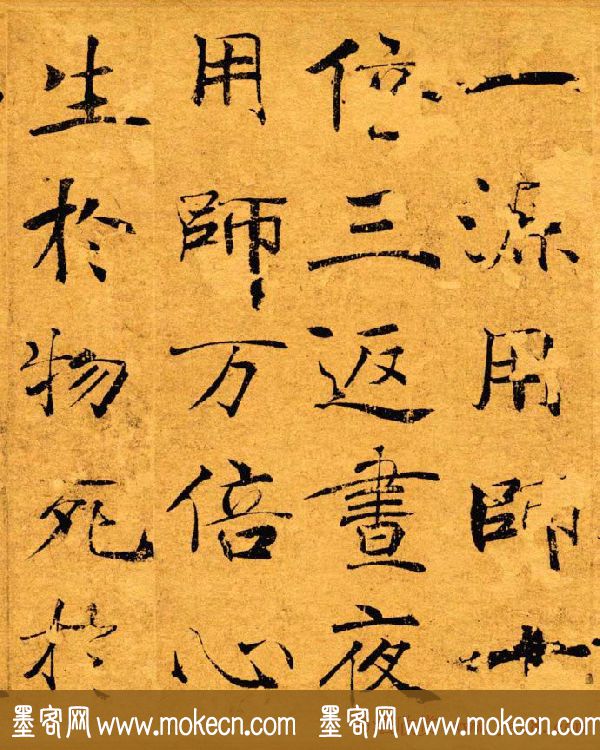 一源用師十
倍三返晝夜
用師万倍心
生於物死於
墨客网 www.mokecn.com 墨客网 www.mokecn.com